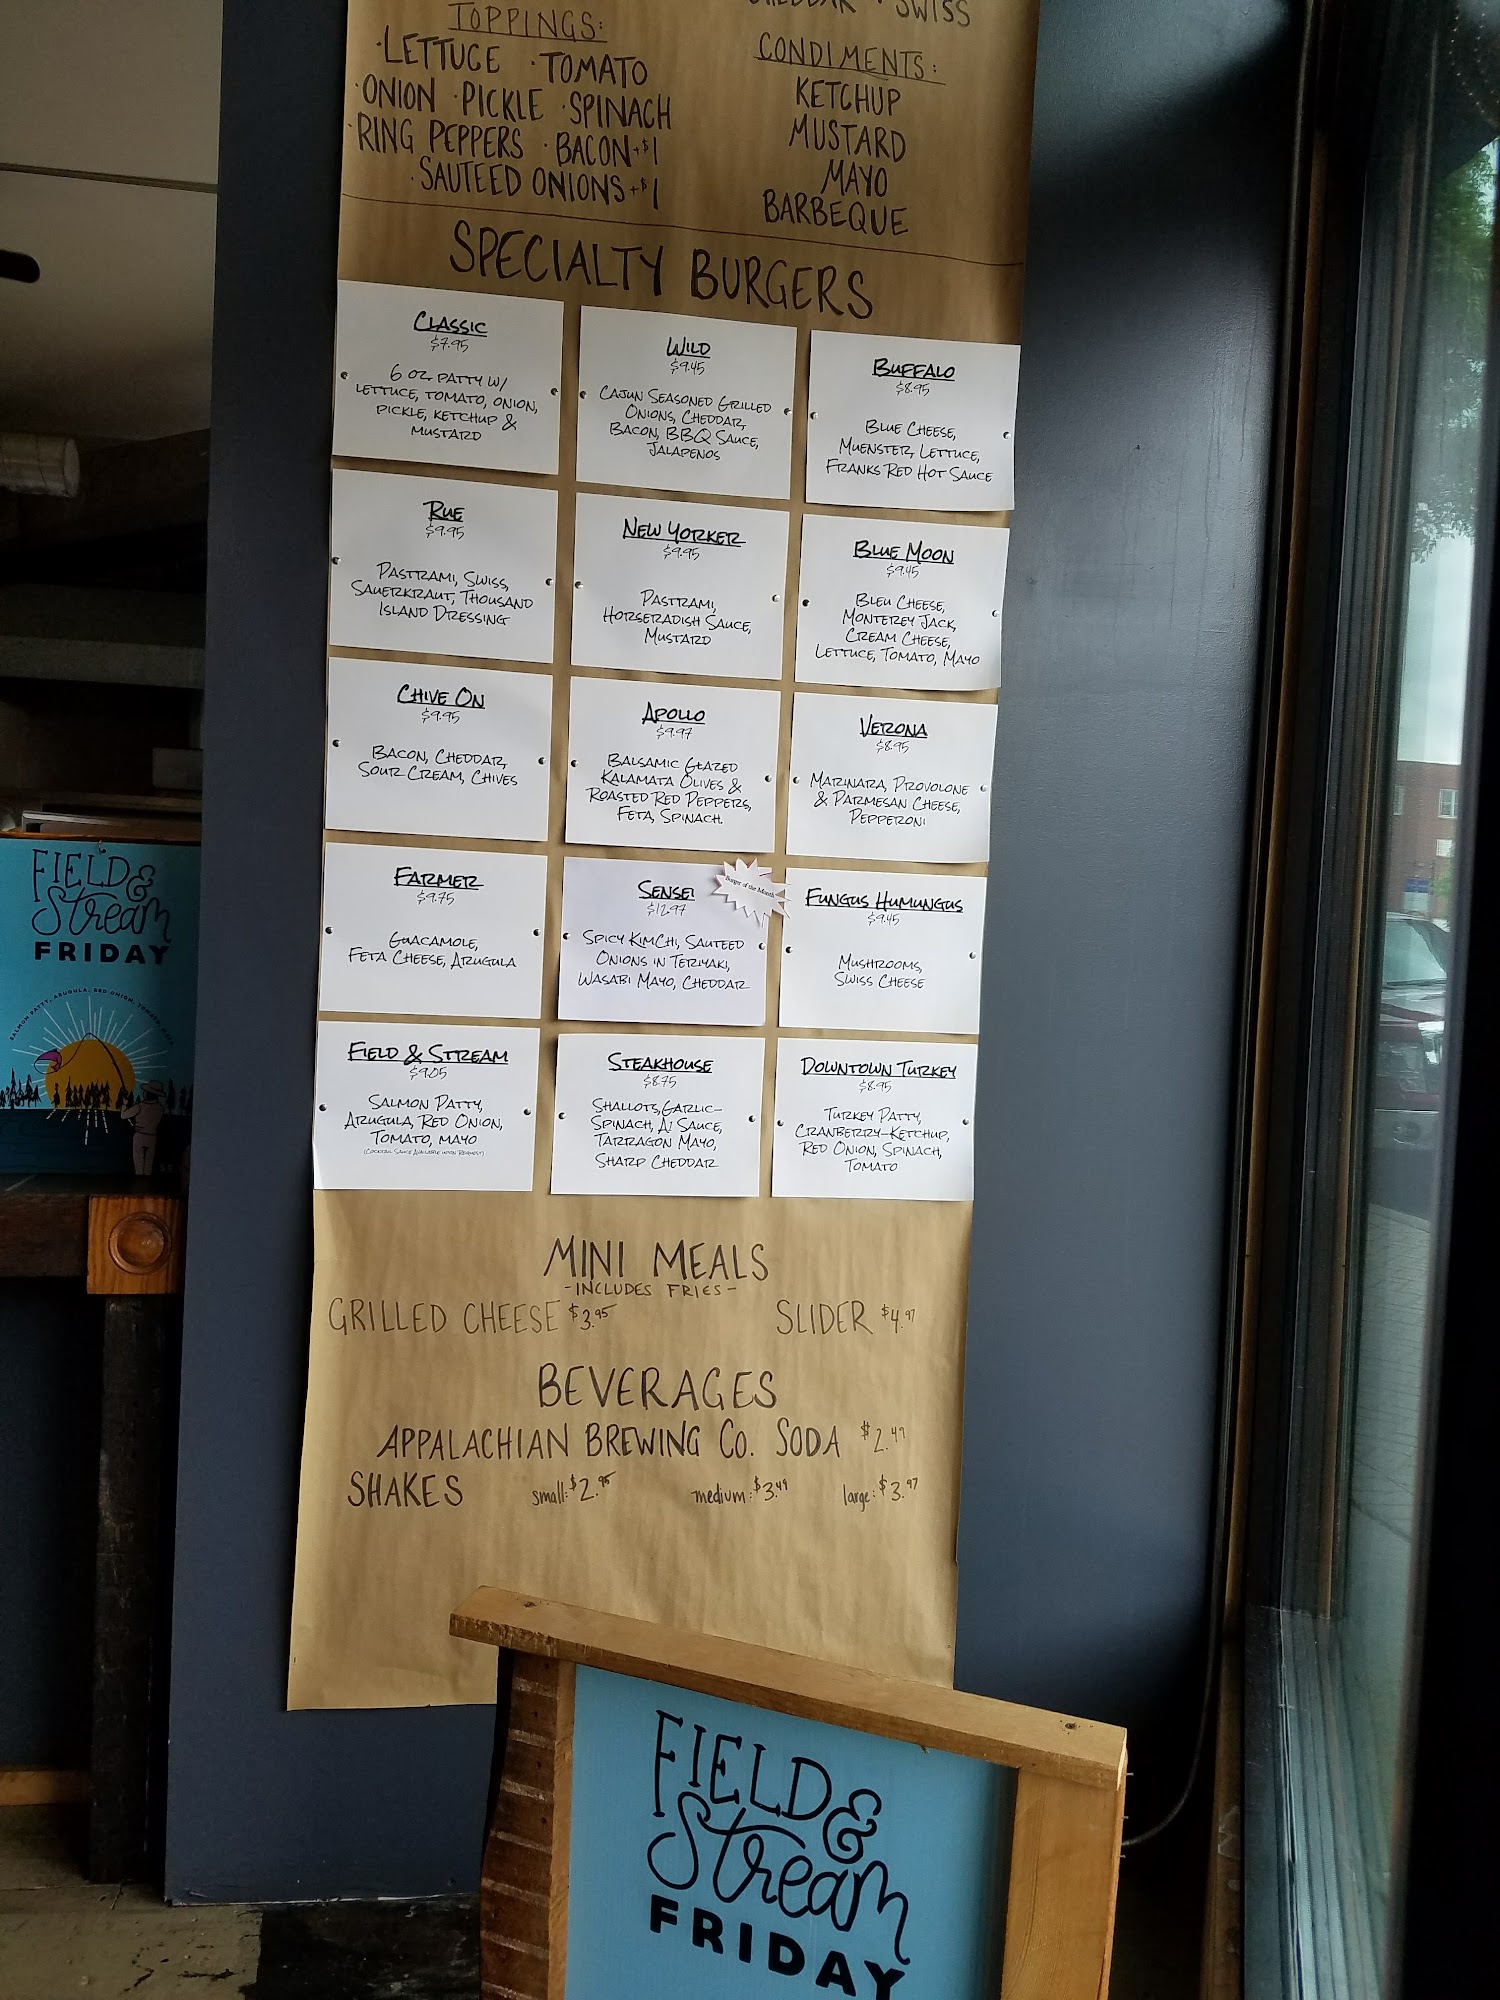 TOPPINGS:
·LETTUCE ·TOMATO
·ONION ·PICKLE ·SPINACH
·RING PEPPERS ·BACON+$1
·SAUTEED ONIONS+$1
CHEDDAR · SWISS
CONDIMENTS:
KETCHUP
MUSTARD
MAYO
BARBEQUE
SPECIALTY BURGERS
CLASSIC
$7.95
6 OZ. PATTY W/
LETTUCE, TOMATO, ONION,
PICKLE, KETCHUP &
MUSTARD
WILD
$9.45
CAJUN SEASONED GRILLED
ONIONS, CHEDDAR,
BACON, BBQ SAUCE,
JALAPENOS
BUFFALO
$8.95
BLUE CHEESE,
MUENSTER, LETTUCE,
FRANKS RED HOT SAUCE
RUE
$9.95
PASTRAMI, SWISS,
SAUERKRAUT, THOUSAND
ISLAND DRESSING
NEW YORKER
$9.95
PASTRAMI,
HORSERADISH SAUCE,
MUSTARD
BLUE MOON
$9.45
BLEU CHEESE,
MONTEREY JACK,
CREAM CHEESE,
LETTUCE, TOMATO, MAYO
CHIVE ON
$9.95
BACON, CHEDDAR,
SOUR CREAM, CHIVES
APOLLO
$9.97
BALSAMIC GLAZED
KALAMATA OLIVES &
ROASTED RED PEPPERS,
FETA, SPINACH.
VERONA
$8.95
MARINARA, PROVOLONE
& PARMESAN CHEESE,
PEPPERONI
FARMER
$9.75
GUACAMOLE,
FETA CHEESE, ARUGULA
SENSEI
$12.97
Burger of the Month
SPICY KIMCHI, SAUTEED
ONIONS IN TERIYAKI,
WASABI MAYO, CHEDDAR
FUNGUS HUMUNGUS
$9.45
MUSHROOMS,
SWISS CHEESE
FIELD & STREAM
$9.05
SALMON PATTY,
ARUGULA, RED ONION,
TOMATO, MAYO
(COCKTAIL SAUCE AVAILABLE UPON REQUEST)
STEAKHOUSE
$8.75
SHALLOTS, GARLIC-
SPINACH, A1 SAUCE,
TARRAGON MAYO,
SHARP CHEDDAR
DOWNTOWN TURKEY
$8.95
TURKEY PATTY,
CRANBERRY-KETCHUP,
RED ONION, SPINACH,
TOMATO
MINI MEALS
-INCLUDES FRIES-
GRILLED CHEESE $3.95 SLIDER $4.97
BEVERAGES
APPALACHIAN BREWING CO. SODA $2.49
SHAKES small: $2.95 medium: $3.49 large: $3.97
FIELD &
Stream
FRIDAY
SALMON PATTY, ARUGULA, RED ONION, TOMATO, MAYO
FIELD &
Stream
FRIDAY